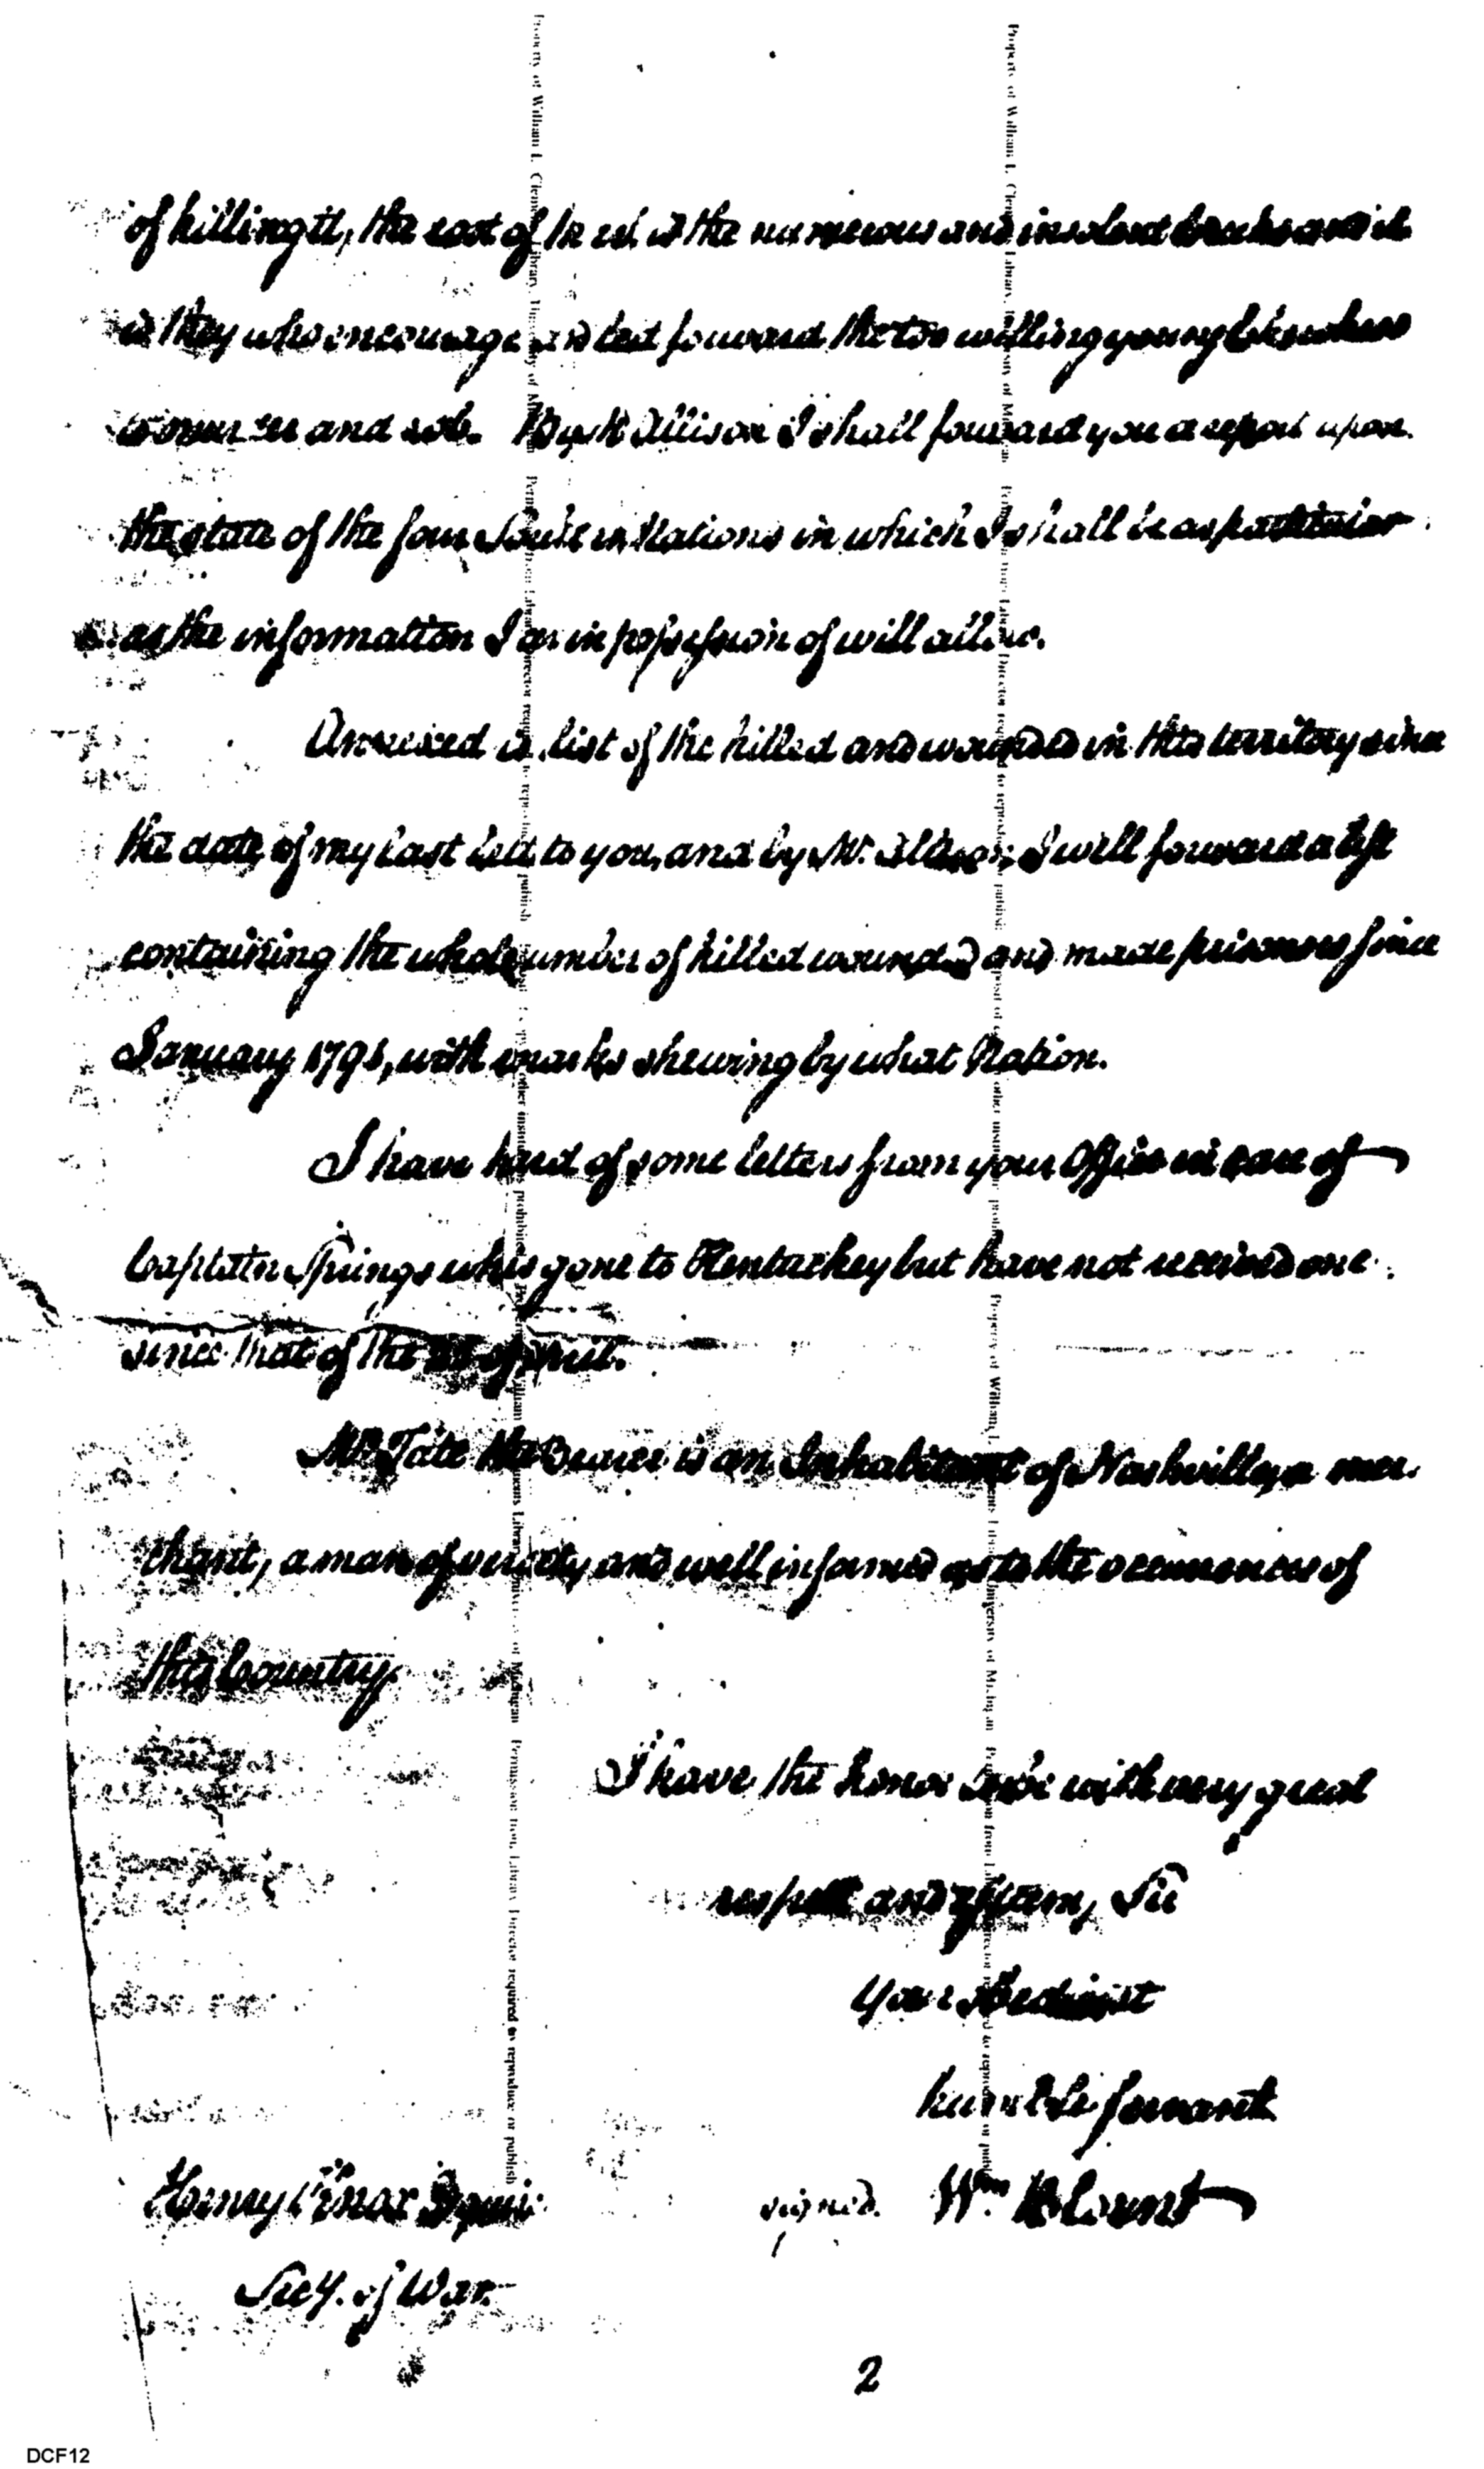 of killing it, the root of the evil is the numerous and insolent Creeks and it
is they who encourage and lead forward the too willing young Cherokees
to murder and rob. By Mr Allison I shall forward you a report upon
the state of the four Southern Nations in which I shall be as particular
as the information I am in possession of will allow.
Annexed is list of the killed and wounded in this territory since
the date of my last to you, and by Mr. Allison I will forward a list
containing the whole number of killed wounded and made prisoners since
January 1791, with marks shewing by what Nation.
I have heard of some letters from your Office in care of
Captain Springs who is gone to Kentuckey but have not received one
since that of the of April.
Mr. Tate the Bearer is an Inhabitant of Nashville, a mer-
chant, a man of veracity and well informed as to the occurrences of
this Country.
I have the honor to be with very great
respect and esteem, Sir
Your obedient
humble servant
Henry Knox Esquire signed. Wm Blount
Secy. of War.
2
DCF12